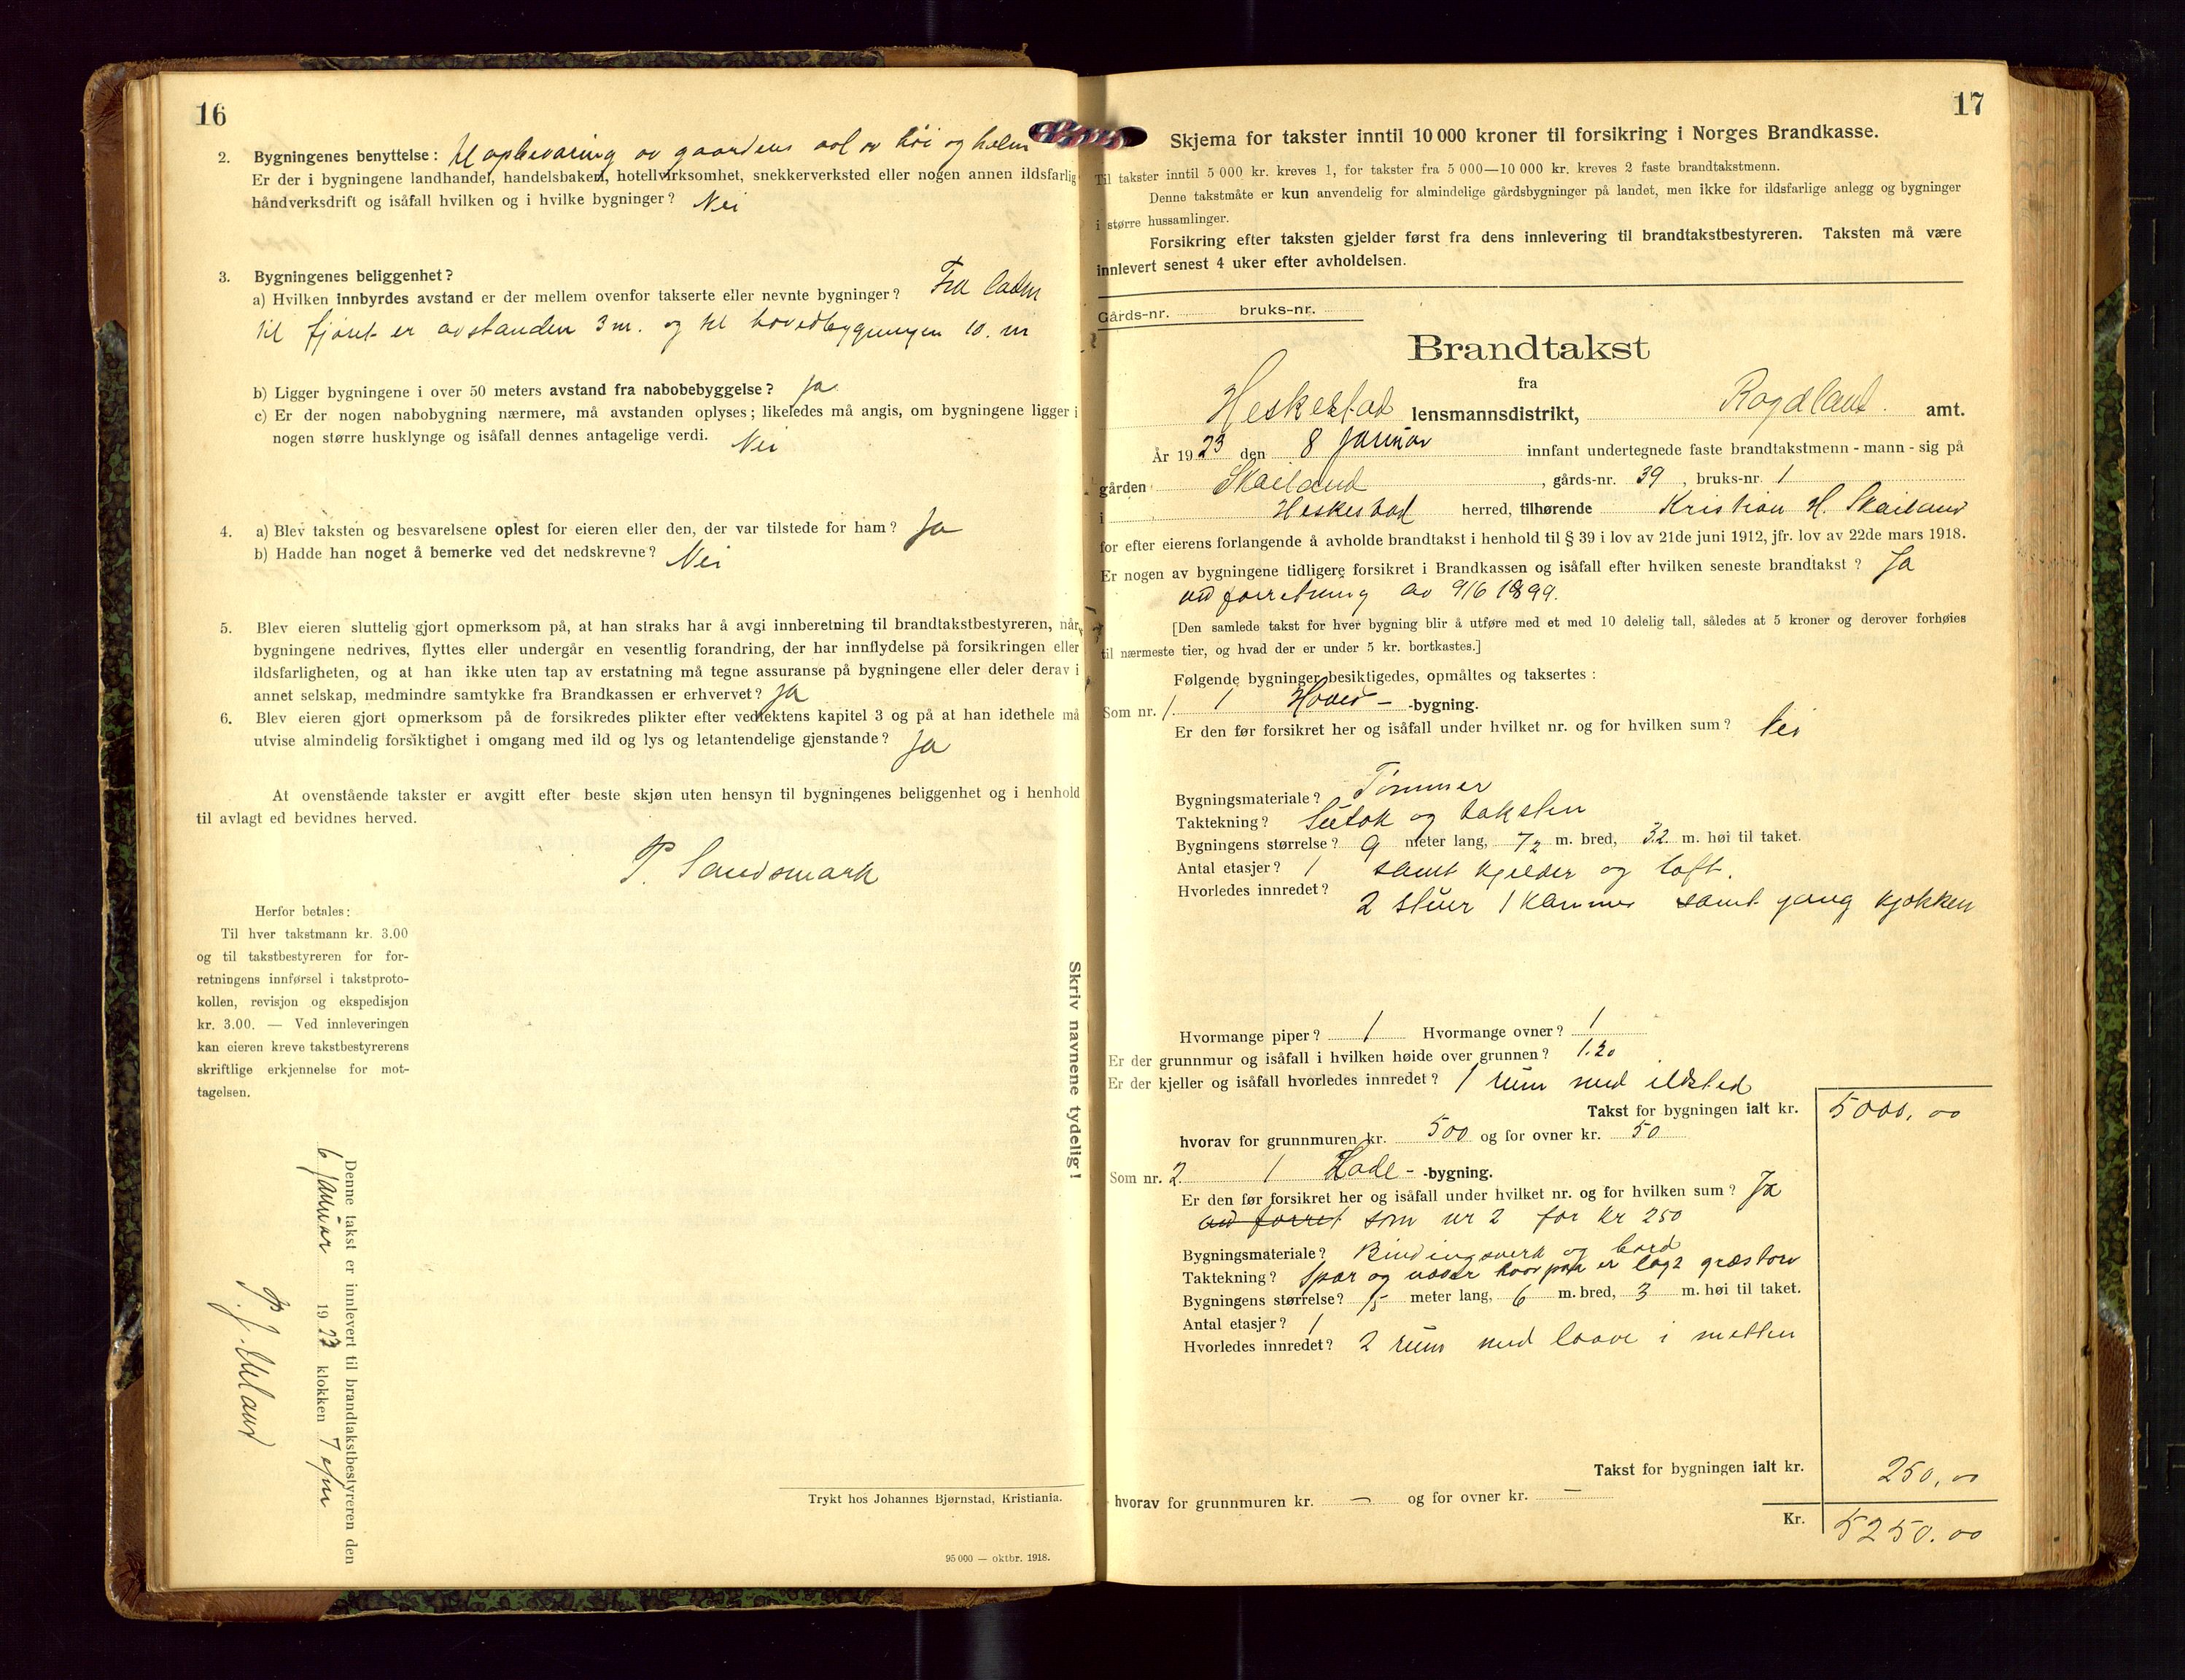 16
2. Bygningenes benyttelse: til opbevaring av gaardens avl av höi og halm
Er der i bygningene landhandel, handelsbakeri, hotellvirksomhet, snekkerverksted eller nogen annen ildsfarlig
håndverksdrift og isåfall hvilken og i hvilke bygninger? Nei
3. Bygningenes beliggenhet?
a) Hvilken innbyrdes avstand er der mellem ovenfor takserte eller nevnte bygninger? Fra laden
til fjöset er avstanden 3 m. og til hovedbygningen 10. m
b) Ligger bygningene i over 50 meters avstand fra nabobebyggelse? Ja
c) Er der nogen nabobygning nærmere, må avstanden oplyses; likeledes må angis, om bygningene ligger i
nogen større husklynge og isåfall dennes antagelige verdi. Nei
4. a) Blev taksten og besvarelsene oplest for eieren eller den, der var tilstede for ham? Ja
b) Hadde han noget å bemerke ved det nedskrevne? Nei
5. Blev eieren sluttelig gjort opmerksom på, at han straks har å avgi innberetning til brandtakstbestyreren, når
bygningene nedrives, flyttes eller undergår en vesentlig forandring, der har innflydelse på forsikringen eller
ildsfarligheten, og at han ikke uten tap av erstatning må tegne assuranse på bygningene eller deler derav i
annet selskap, medmindre samtykke fra Brandkassen er erhvervet? Ja
6. Blev eieren gjort opmerksom på de forsikredes plikter efter vedtektens kapitel 3 og på at han idethele må
utvise almindelig forsiktighet i omgang med ild og lys og letantendelige gjenstande? Ja
At ovenstående takster er avgitt efter beste skjøn uten hensyn til bygningenes beliggenhet og i henhold
til avlagt ed bevidnes herved.
P. Sandsmark
Herfor betales:
Til hver takstmann kr. 3.00
og til takstbestyreren for for-
retningens innførsel i takstproto-
kollen, revisjon og ekspedisjon
kr. 3.00. — Ved innleveringen
kan eieren kreve takstbestyrerens
skriftlige erkjennelse for mot-
tagelsen.
Denne takst er innlevert til brandtakstbestyreren den
6 Januar 1923 klokken 7 efm
Skriv navnene tydelig!
Trykt hos Johannes Bjørnstad, Kristiania.
95 000 — oktbr. 1918.
17
Skjema for takster inntil 10 000 kroner til forsikring i Norges Brandkasse.
Til takster inntil 5 000 kr. kreves 1, for takster fra 5 000—10 000 kr. kreves 2 faste brandtakstmenn.
Denne takstmåte er kun anvendelig for almindelige gårdsbygninger på landet, men ikke for ildsfarlige anlegg og bygninger
i større hussamlinger.
Forsikring efter taksten gjelder først fra dens innlevering til brandtakstbestyreren. Taksten må være
innlevert senest 4 uker efter avholdelsen.
Gårds-nr. bruks-nr.
Brandtakst
fra
Heskestad lensmannsdistrikt, Rogaland. amt.
År 1923 den 8 Januar innfant undertegnede faste brandtakstmenn - mann - sig på
gården Skailand, gårds-nr. 39, bruks-nr. 1
i Heskestad herred, tilhørende Kristian H. Skailand
for efter eierens forlangende å avholde brandtakst i henhold til § 39 i lov av 21de juni 1912, jfr. lov av 22de mars 1918.
Er nogen av bygningene tidligere forsikret i Brandkassen og isåfall efter hvilken seneste brandtakst? Ja
ved forretning av 9/6 1899.
[Den samlede takst for hver bygning blir å utføre med et med 10 delelig tall, således at 5 kroner og derover forhøies
til nærmeste tier, og hvad der er under 5 kr. bortkastes.]
Følgende bygninger besiktigedes, opmåltes og taksertes:
Som nr. 1. 1 Hoved- -bygning.
Er den før forsikret her og isåfall under hvilket nr. og for hvilken sum? Nei
Bygningsmateriale? Tömmer
Taktekning? Sutak og taksten
Bygningens størrelse? 9 meter lang, 7 2 m. bred, 3.2 m. høi til taket.
Antal etasjer? 1 samt kjelder og loft.
Hvorledes innredet? 2 stuer 1 kammer samt gang kjökken
Hvormange piper? 1 Hvormange ovner? 1
Er der grunnmur og isåfall i hvilken høide over grunnen? 1.20
Er der kjeller og isåfall hvorledes innredet? 1 rum med ildsted
Takst for bygningen ialt kr. 5000,00
hvorav for grunnmuren kr. 500 og for ovner kr. 50
Som nr. 2. 1 Lade- -bygning.
Er den før forsikret her og isåfall under hvilket nr. og for hvilken sum? Ja
ved forret som nr 2 for kr 250
Bygningsmateriale? Bindingsverk og bord
Taktekning? Spær og næver hvorpaa er lagt græstorv
Bygningens størrelse? 15 meter lang, 6 m. bred, 3 m. høi til taket.
Antal etasjer? 1
Hvorledes innredet? 2 rum med laave i mitten
Takst for bygningen ialt kr. 250,00
hvorav for grunnmuren kr. — og for ovner kr. —
Kr. 5250.00